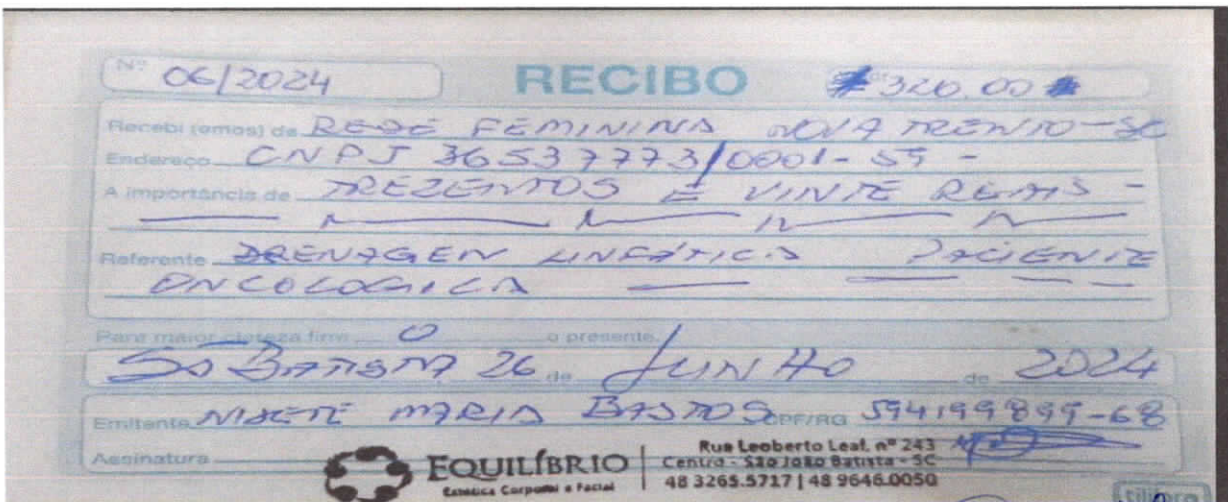 Nº 06/2024 RECIBO #320.00#
Recebi (emos) de REDE FEMININA NOVA TRENTO-SC
Endereço CNPJ 36537773/0001-59 -
A importância de TREZENTOS E VINTE REAIS -
Referente DRENAGEN LINFÁTICA PACIENTE
ONCOLOGICA
Para maior clareza firmo O o presente.
São BATISTA 26 de JUNHO de 2024
Emitente NIZETE MARIA BASTOS CPF/RG 594199899-68
Assinatura
EQUILÍBRIO
Estética Corporal e Facial
Rua Leoberto Leal, nº 243
Centro - São João Batista - SC
48 3265.5717 | 48 9646.0050